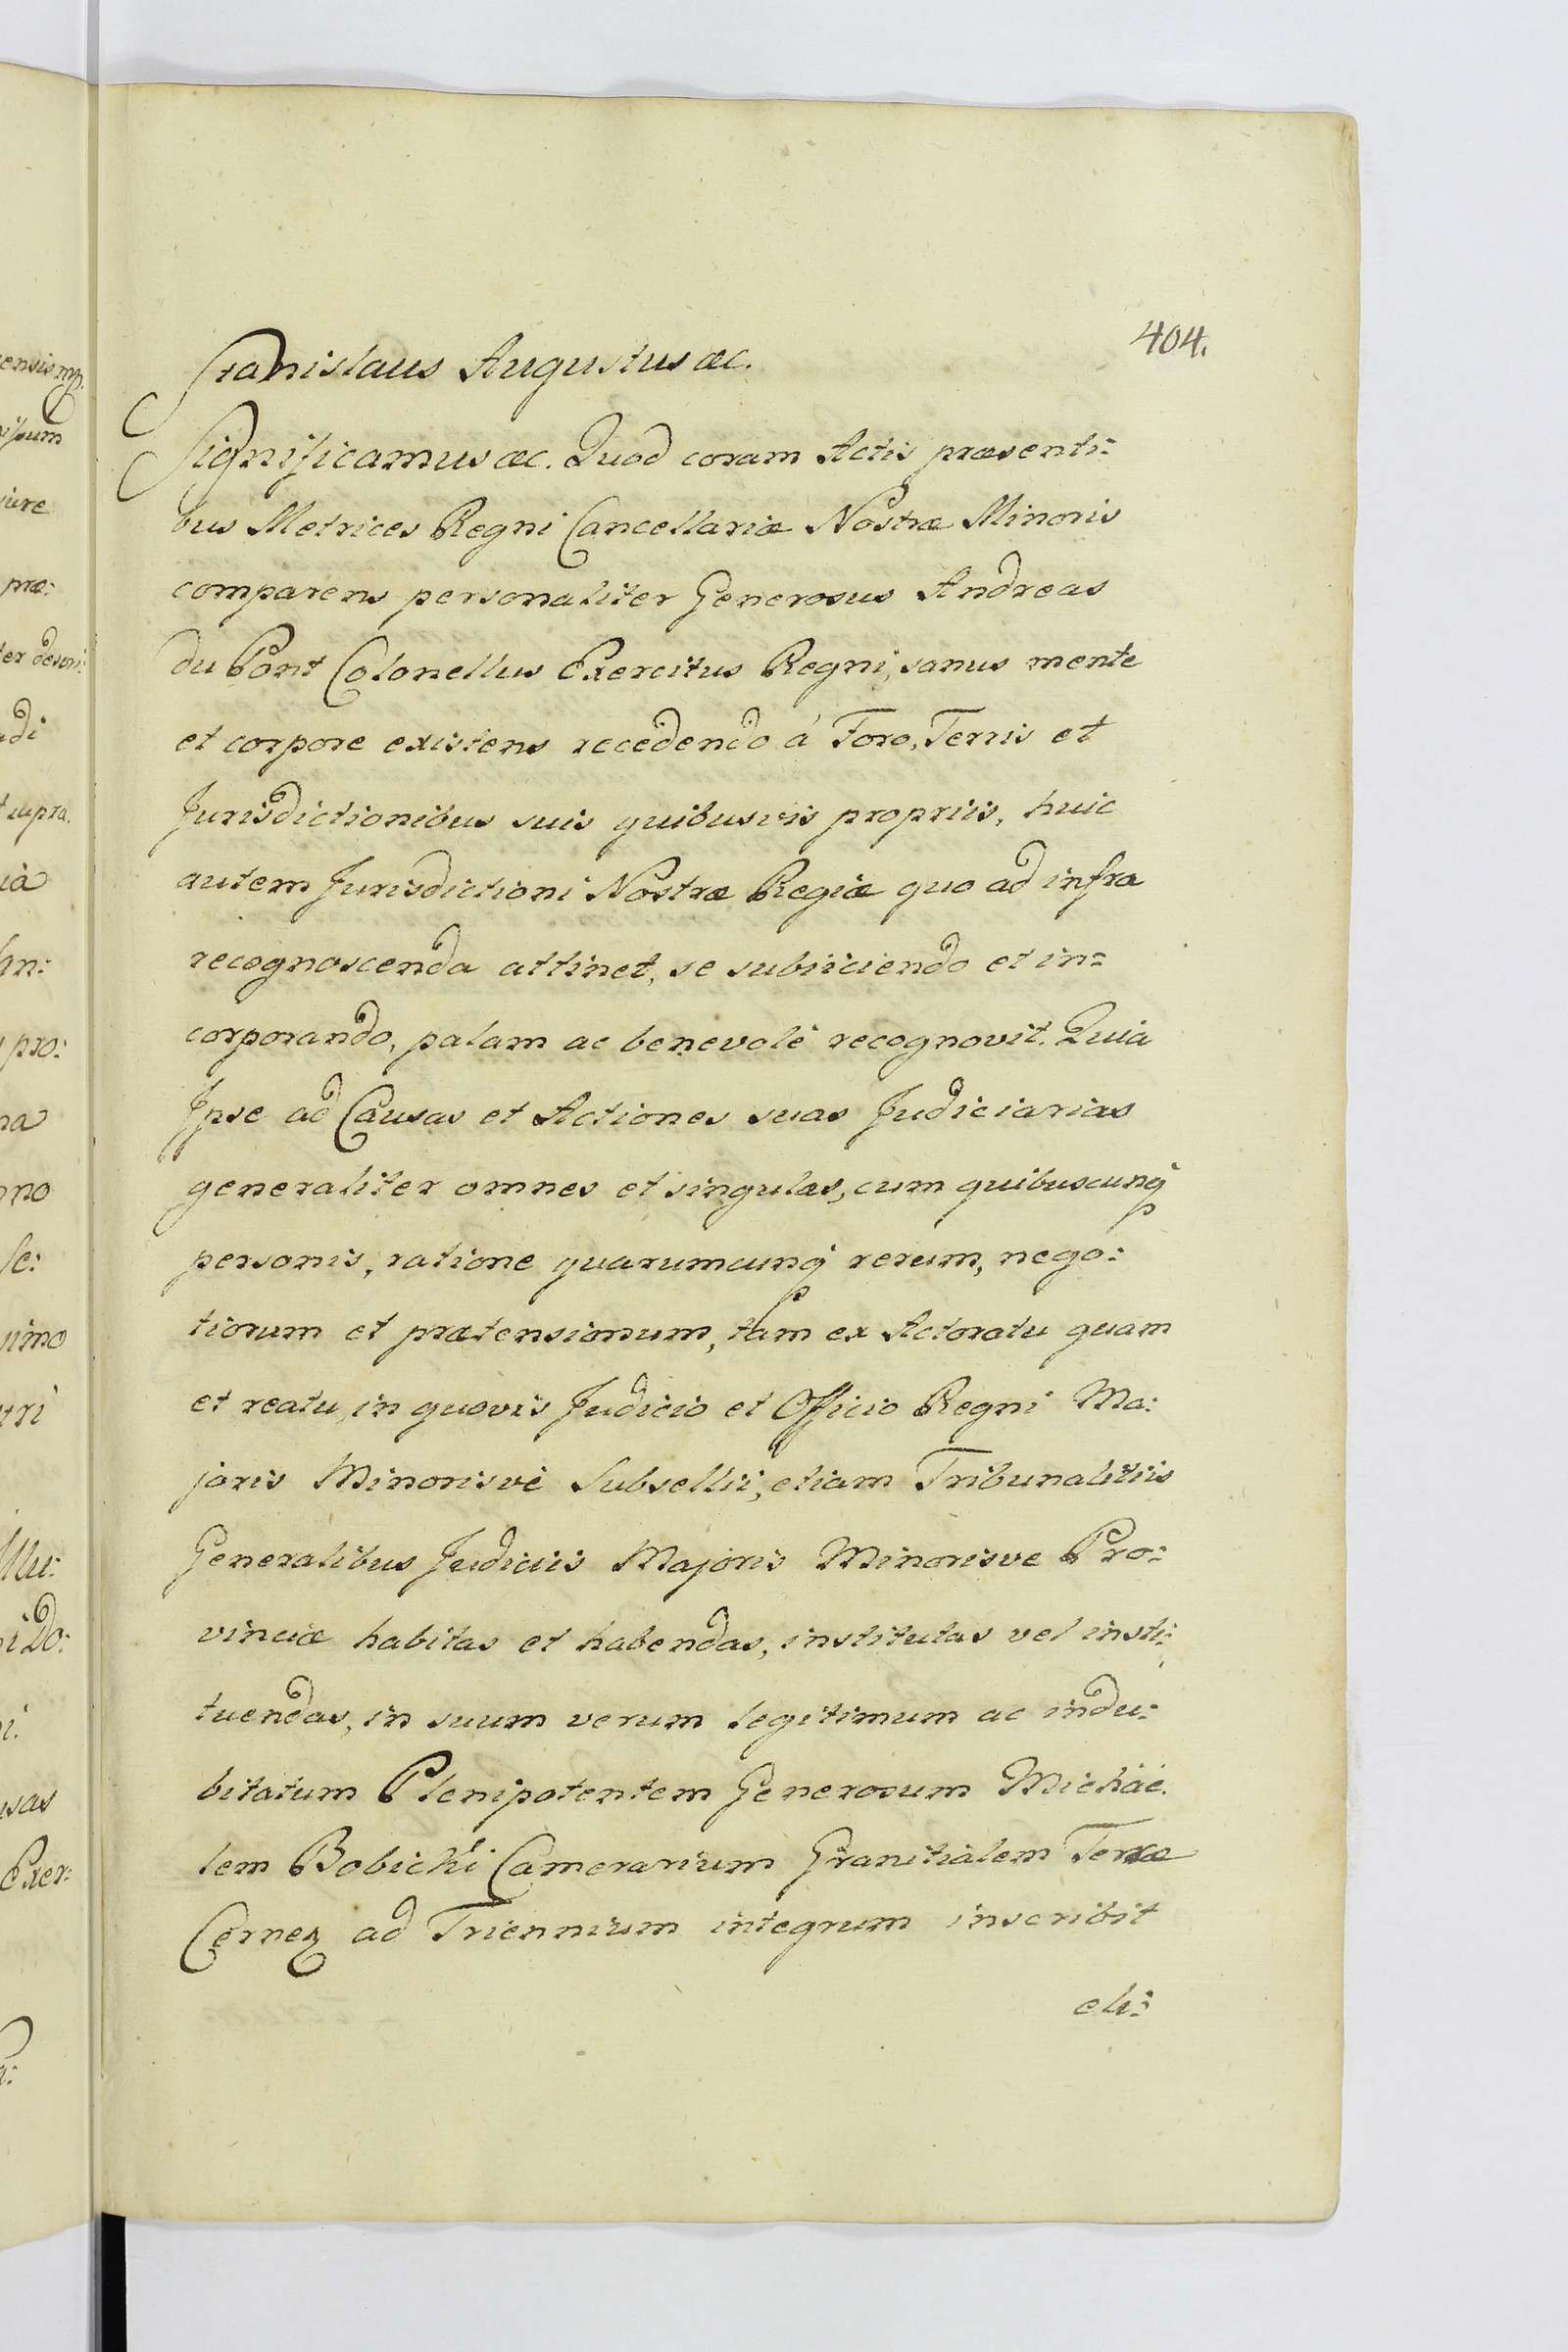 404.
Stanislaus Augustus &c.
Significamus &c. Quod coram Actis præsenti=
bus Metrices Regni Cancellariæ Nostræ Minoris
comparens personaliter Generosus Andreas
du Pont Colonellus Exercitus Regni, sanus mente
et corpore existens recedendo á Foro, Terris et
Jurisdictionibus suis quibusvis propriis, huic
autem Jurisdictioni Nostræ Regiæ quo ad infra
recognoscenda attinet, se subiiciendo et in=
corporando, palam ac benevolè recognovit. Quia
Ipse ad Causas et Actiones suas Judiciarias
generaliter omnes et singulas, cum quibuscunq
personis, ratione quarumcunq rerum, nego:
tiorum et prætensionum, tam ex Actoratu quam
et reatu, in quovis Judicio et Officio Regni Ma:
joris Minorisvè Subsellii, etiam Tribunalitiis
Generalibus Judiciis Majoris Minorisve Pro:
vinciæ habitas et habendas, institutas vel insti:
tuendas, in suum verum legitimum ac indu:
bitatum Plenipotentem Generosum Michäe.
lem Bobicki Camerarium Granitialem Terræ
Cernez ad Triennium integrum inscribit
eli:
ensis mp.
jure
præ:
ter descri:
adi
supra.
hn:
pro:
na
no
se:
simo
tri
Illu:
i Do:
i.
usas
Exer: